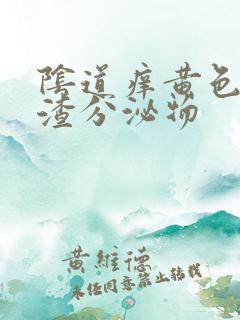 陰道痒黄色
渣分泌物
黄維德
未经同意禁止转载